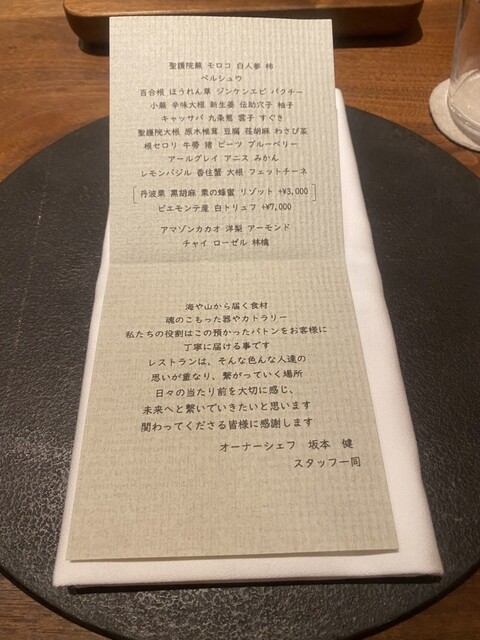 聖護院蕪 モロコ 白人参 柿
ペルシュウ
百合根 ほうれん草 ジンケンエビ パクチー
小蕪 辛味大根 新生姜 伝助穴子 柚子
キャッサバ 九条葱 雲子 すぐき
聖護院大根 原木椎茸 豆腐 荏胡麻 わさび菜
根セロリ 牛蒡 猪 ビーツ ブルーベリー
アールグレイ アニス みかん
レモンバジル 香住蟹 大根 フェットチーネ
丹波栗 黒胡麻 栗の蜂蜜 リゾット +¥3,000
ピエモンテ産 白トリュフ +¥7,000
アマゾンカカオ 洋梨 アーモンド
チャイ ローゼル 林檎
海や山から届く食材
魂のこもった器やカトラリー
私たちの役割はこの預かったバトンをお客様に
丁寧に届ける事です
レストランは、そんな色んな人達の
思いが重なり、繋がっていく場所
日々の当たり前を大切に感じ、
未来へと繋いでいきたいと思います
関わってくださる皆様に感謝します
オーナーシェフ 坂本 健
スタッフ一同